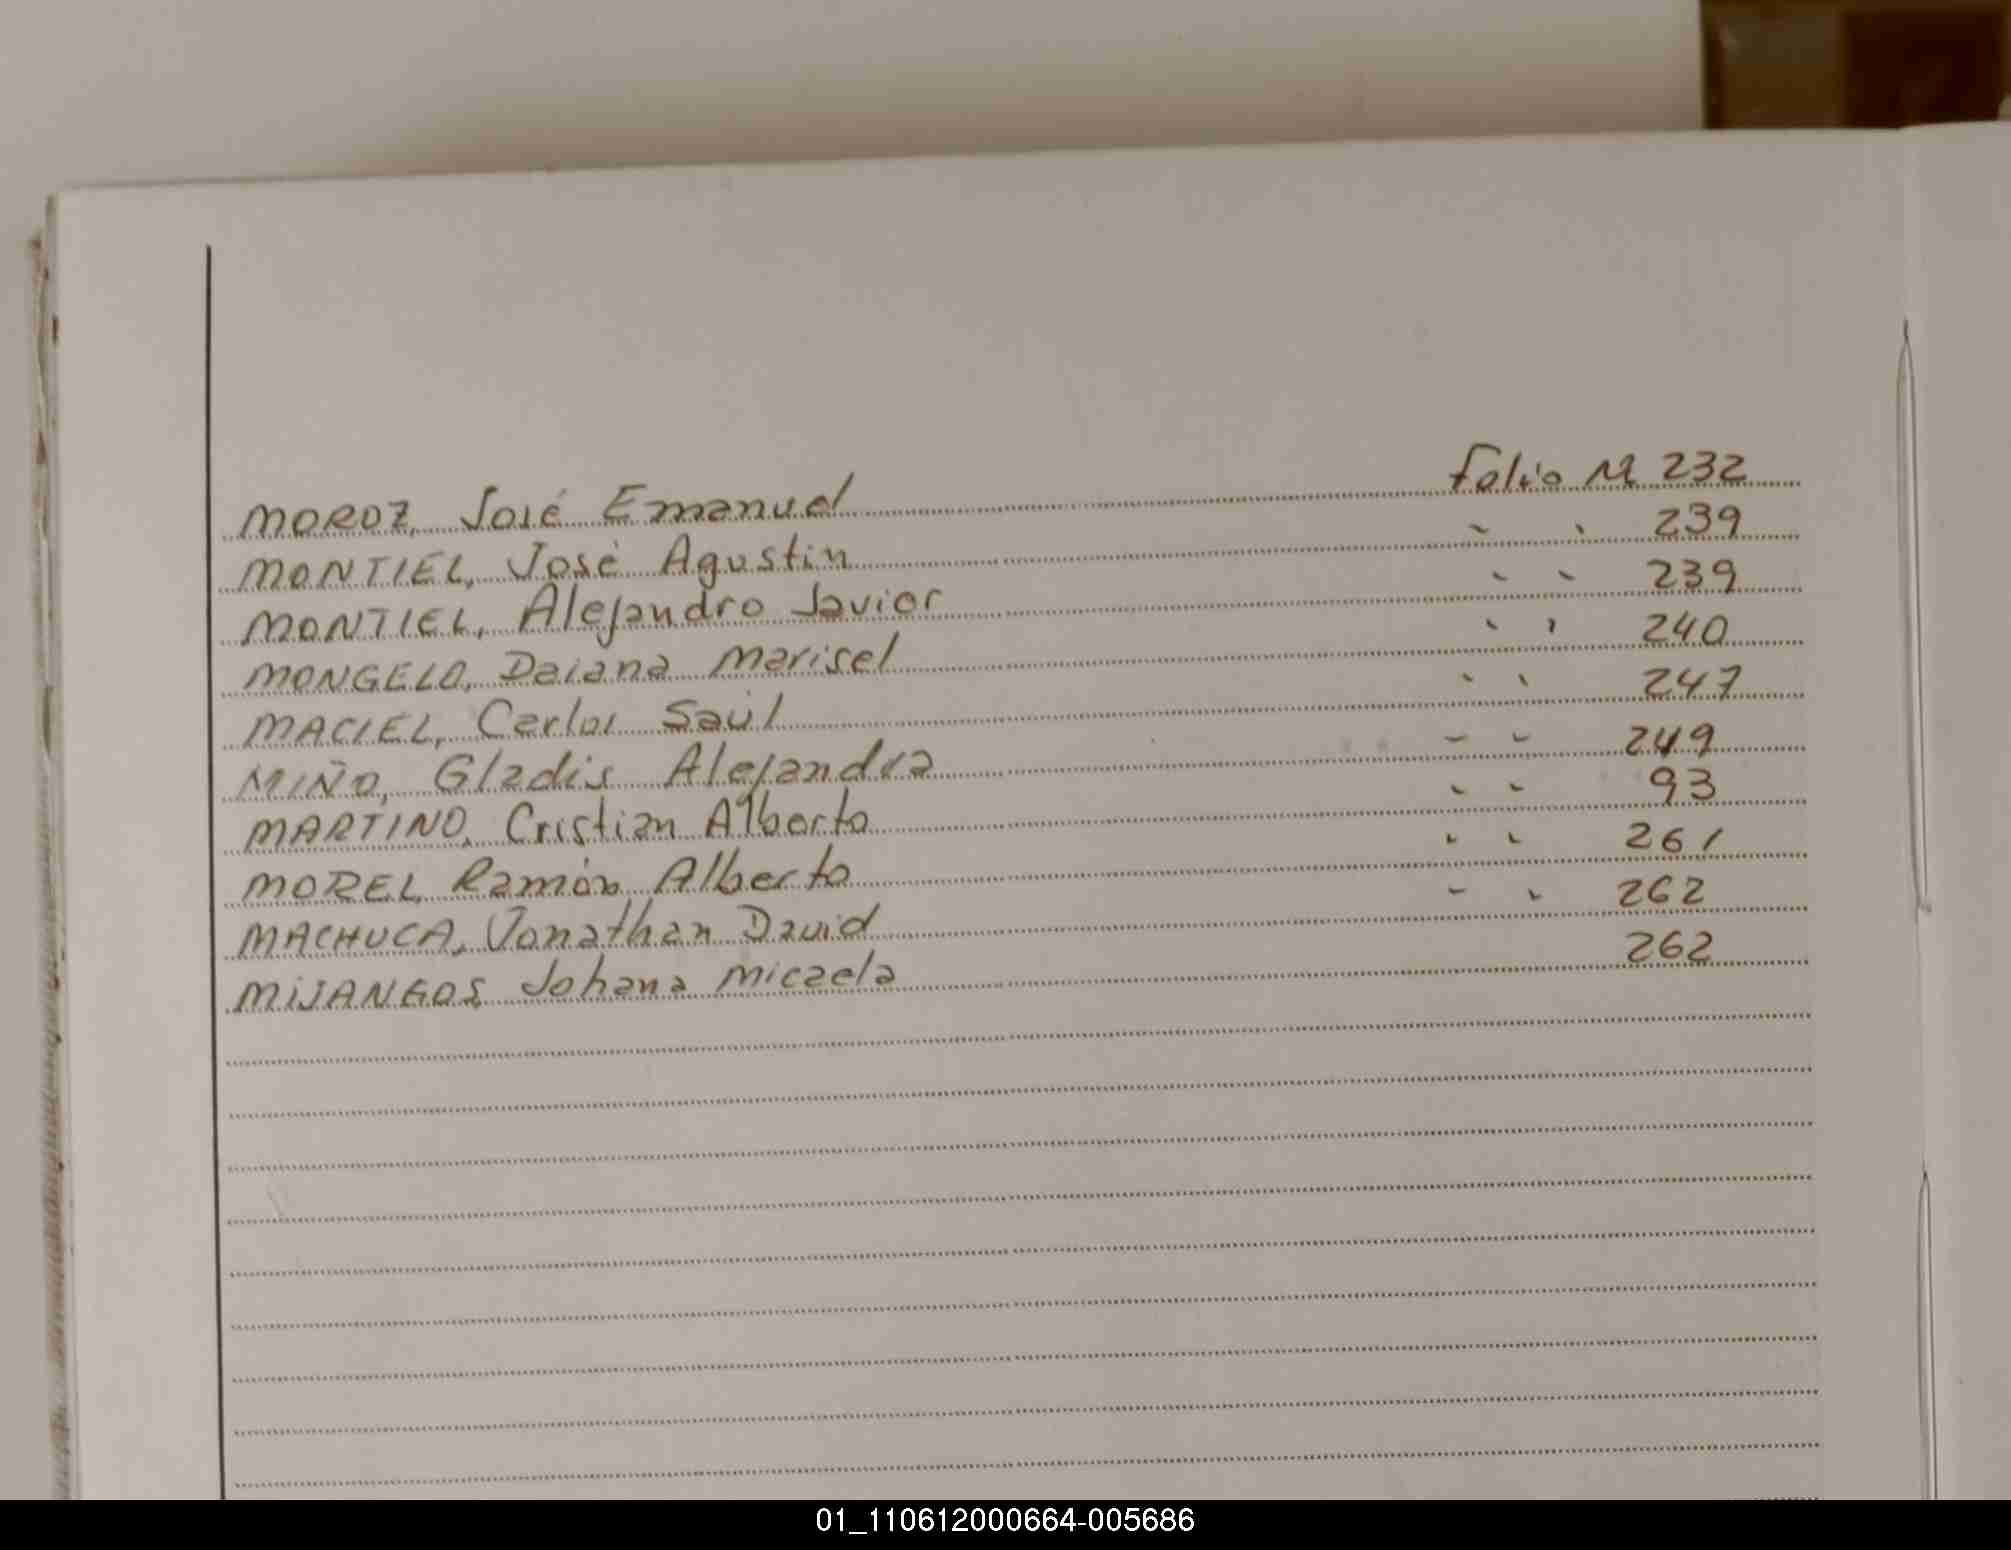 MOROZ, José Emanuel Folio M 232
MONTIEL, José Agustin " " 239
MONTIEL, Alejandro Javier " " 239
MONGELO, Daiana Marisel " " 240
MACIEL, Carlos Saúl " " 247
MIÑO, Gladis Alejandra " " 249
MARTINO, Cristian Alberto " " 93
MOREL, Ramón Alberto " " 261
MACHUCA, Jonathan David " " 262
MIJANGOS, Johana Micaela 262
01_110612000664-005686